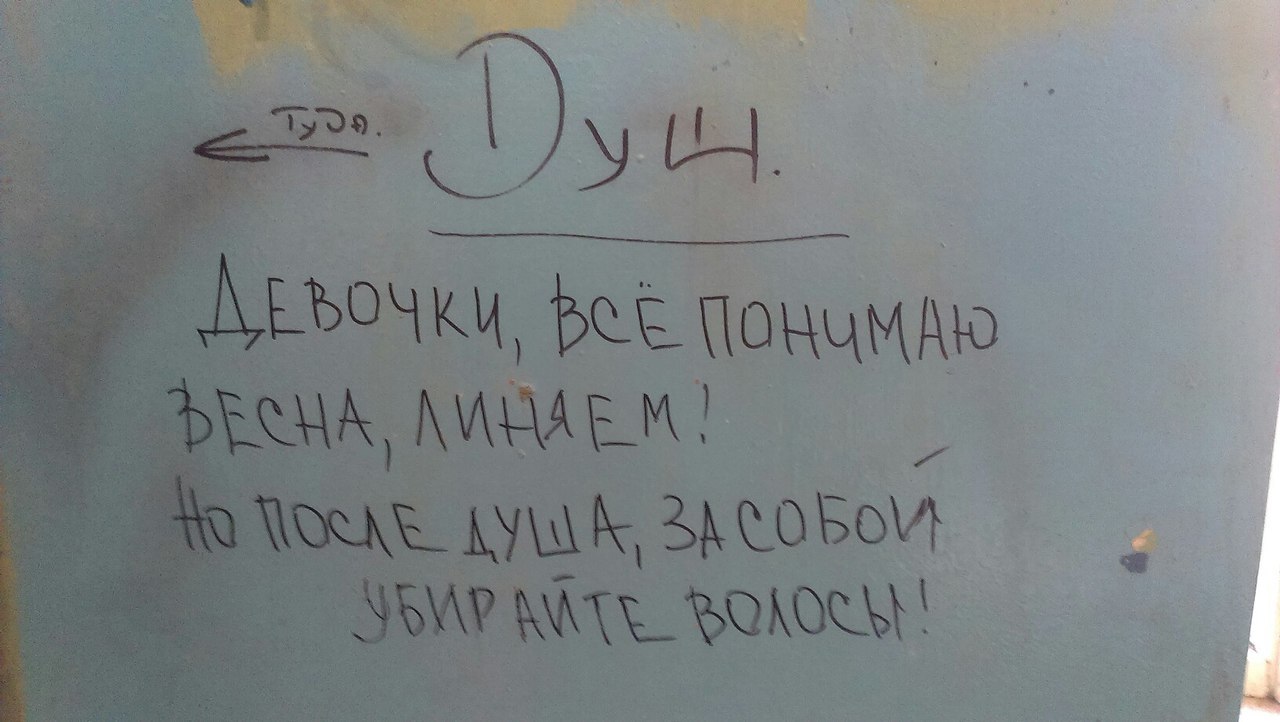 Туда.
Душ.
ДЕВОЧКИ, ВСЁ ПОНИМАЮ
ВЕСНА, ЛИНЯЕМ!
НО ПОСЛЕ ДУША, ЗА СОБОЙ
УБИРАЙТЕ ВОЛОСЫ!